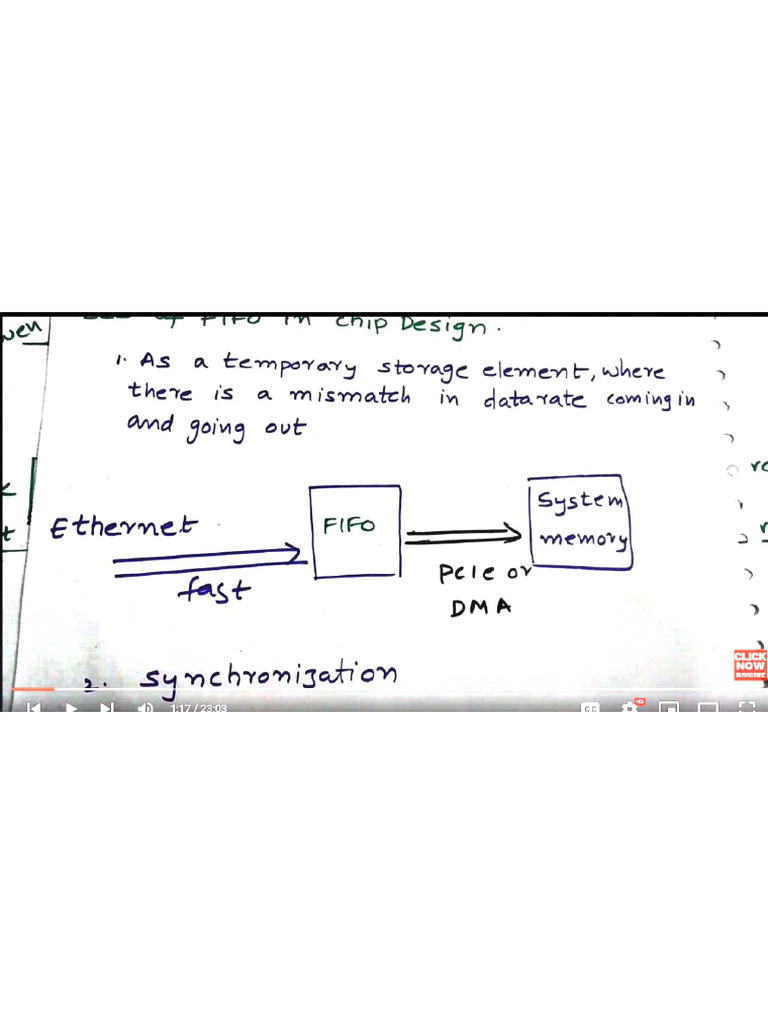 of FIFO in chip Design.
1. As a temporary storage element, where
there is a mismatch in datarate coming in
and going out
Ethernet
fast
FIFO
PCIe or
DMA
System
memory
2. Synchronization
1:17 / 23:03
CC
HD
CLICK
NOW
SUBSCRIBE